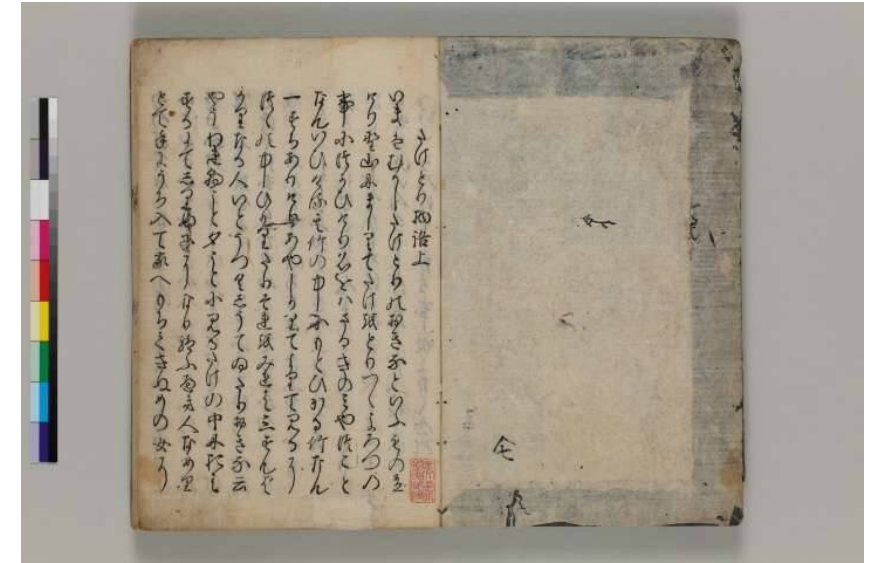 たけとり物語上
いまはむかしたけとりのおきなといふもの有
けり野山にましりてたけをとりつゝよろつの
事につかひけり名をはさるきのみやつこと
なんいひける其竹の中にもとひかる竹なん
一すちありけりあやしかりてよりて見るに
つゝの中ひかりたりそれをみれは三すんは
かりなる人いとうつくしうてゐたりおきな云
やうわれ朝こと夕ことに見るたけの中におはす
るにてしりぬ子になり給ふへき人なめり
とて手にうち入て家へもちてきぬめの女に